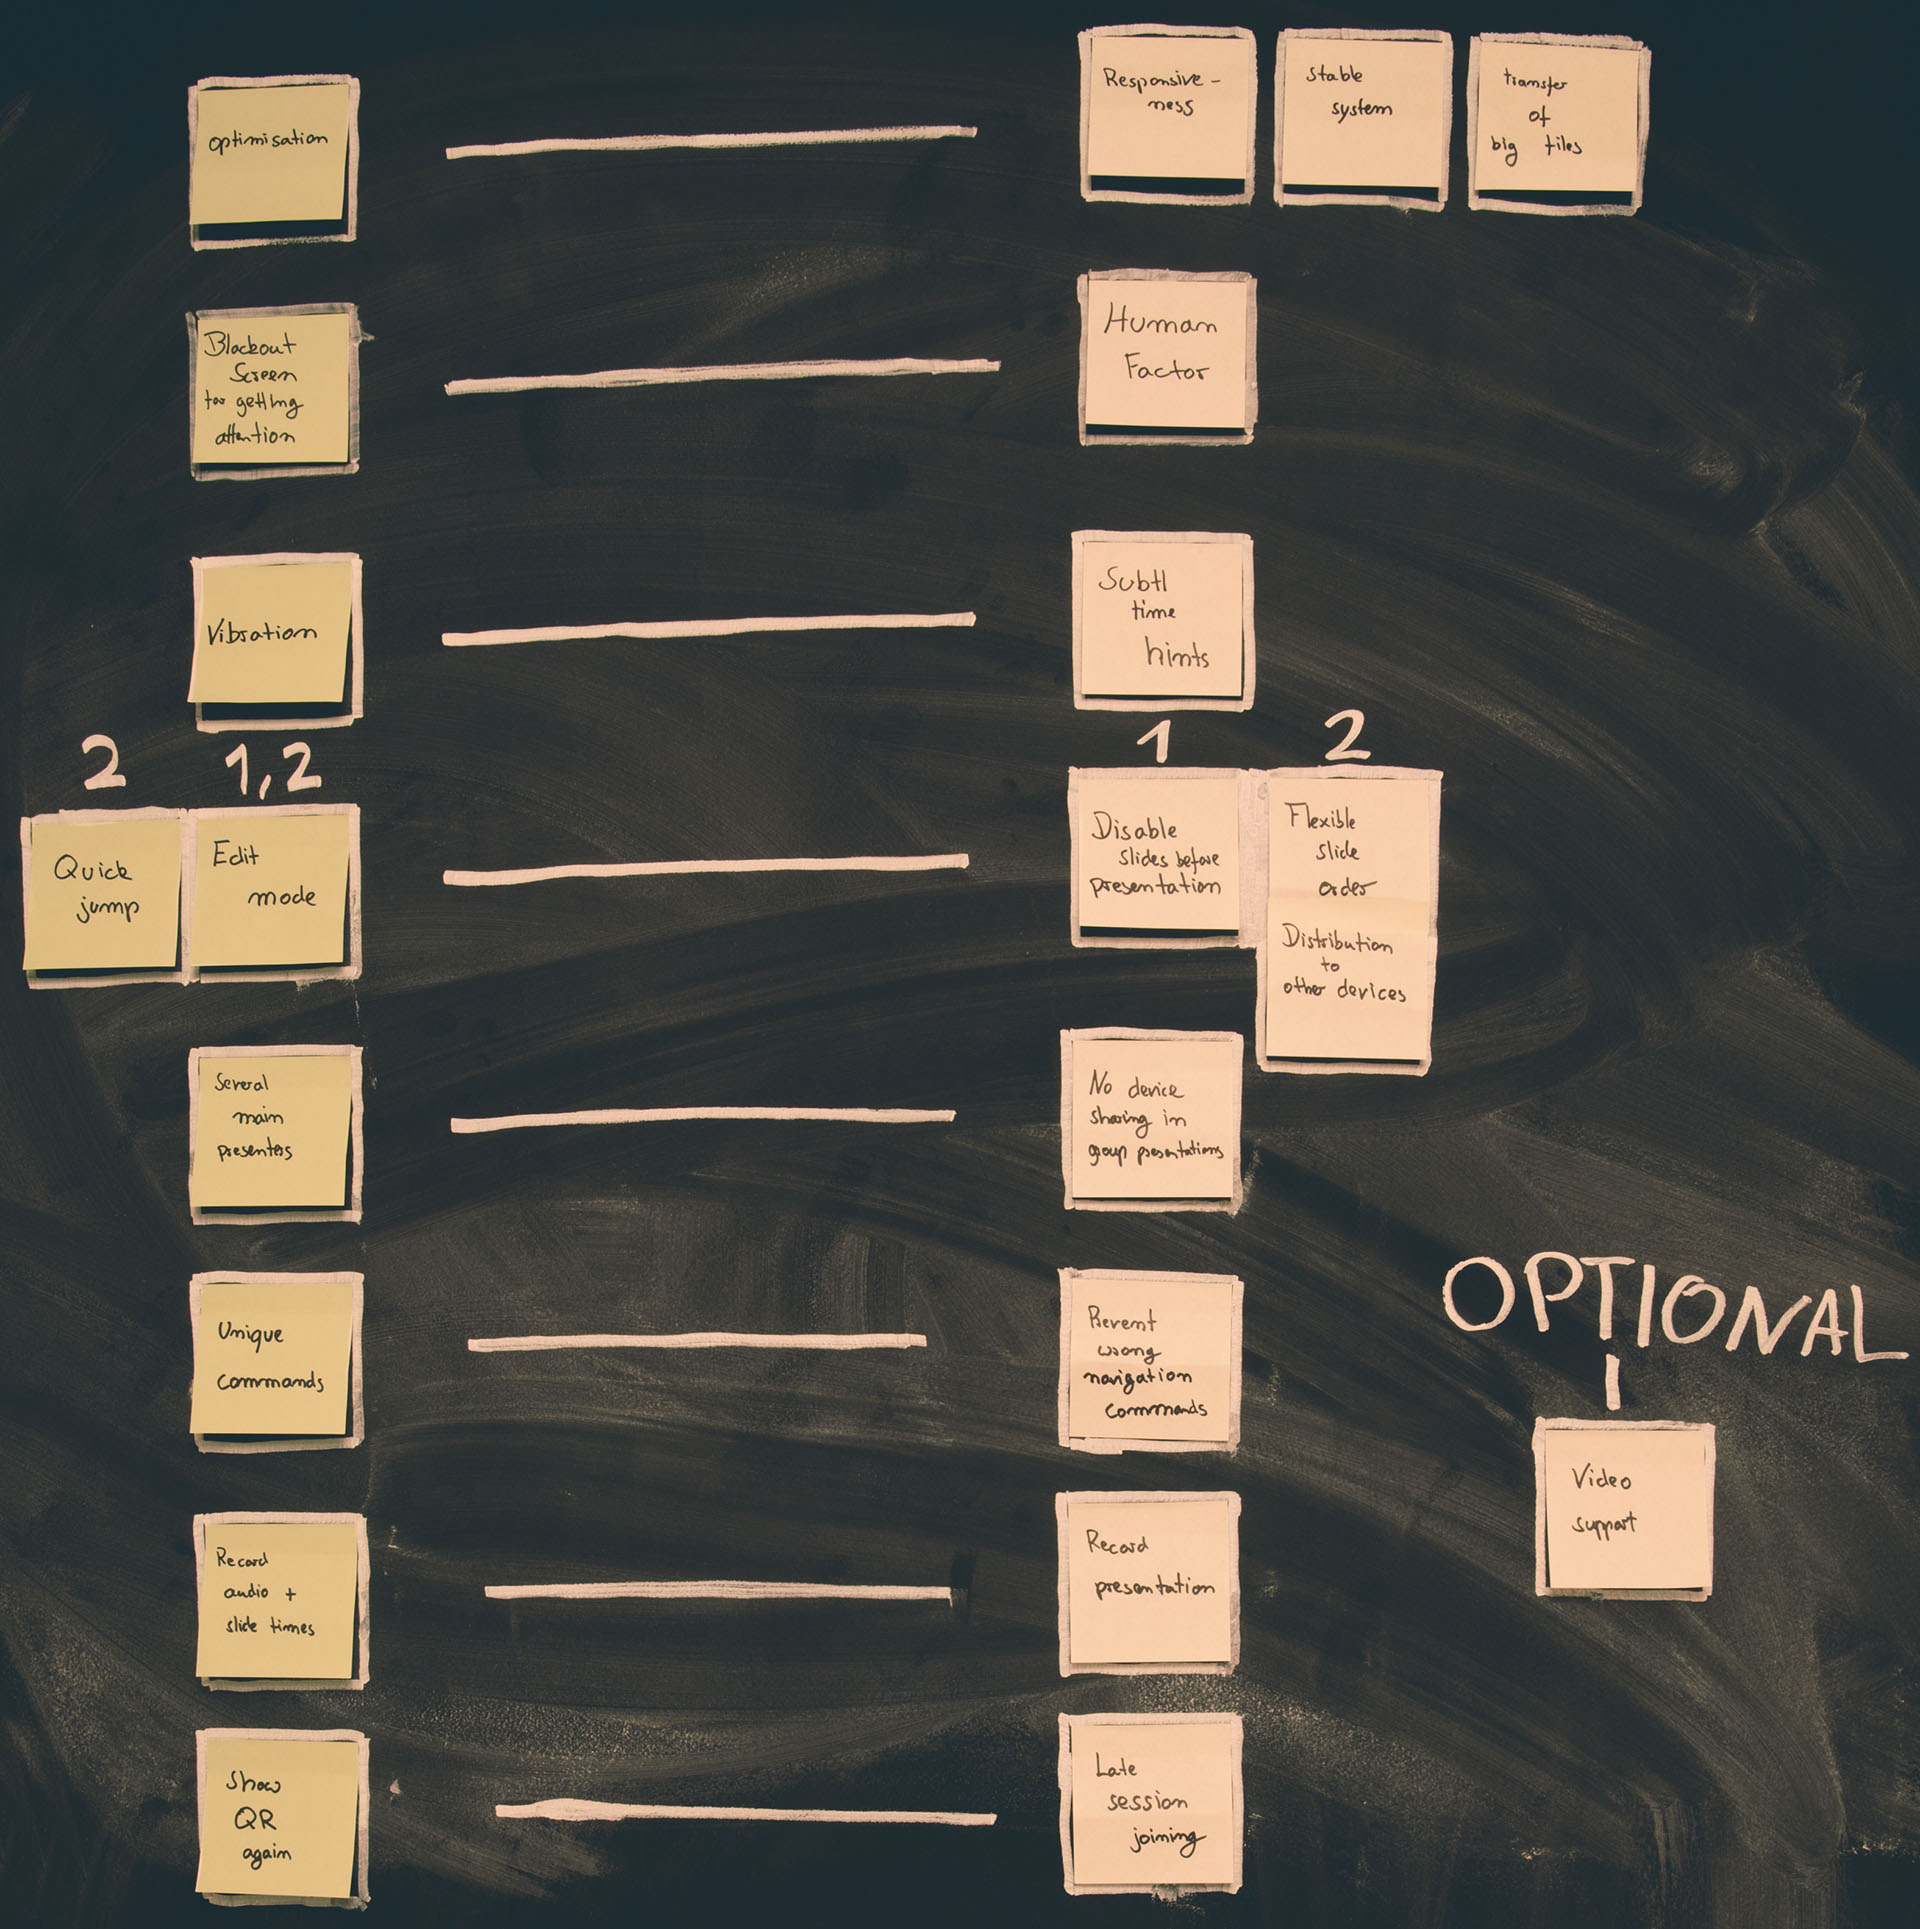 optimisation
Responsive-
ness
stable
system
transfer
of
big files
Blackout
Screen
for getting
attention
Human
Factor
Vibration
Subtl
time
hints
2
1,2
1
2
Quick
jump
Edit
mode
Disable
slides before
presentation
Flexible
slide
order
Distribution
to
other devices
Several
main
presenters
No device
sharing in
group presentations
Unique
commands
Prevent
wrong
navigation
commands
OPTIONAL
Video
support
Record
audio +
slide times
Record
presentation
Show
QR
again
Late
session
joining